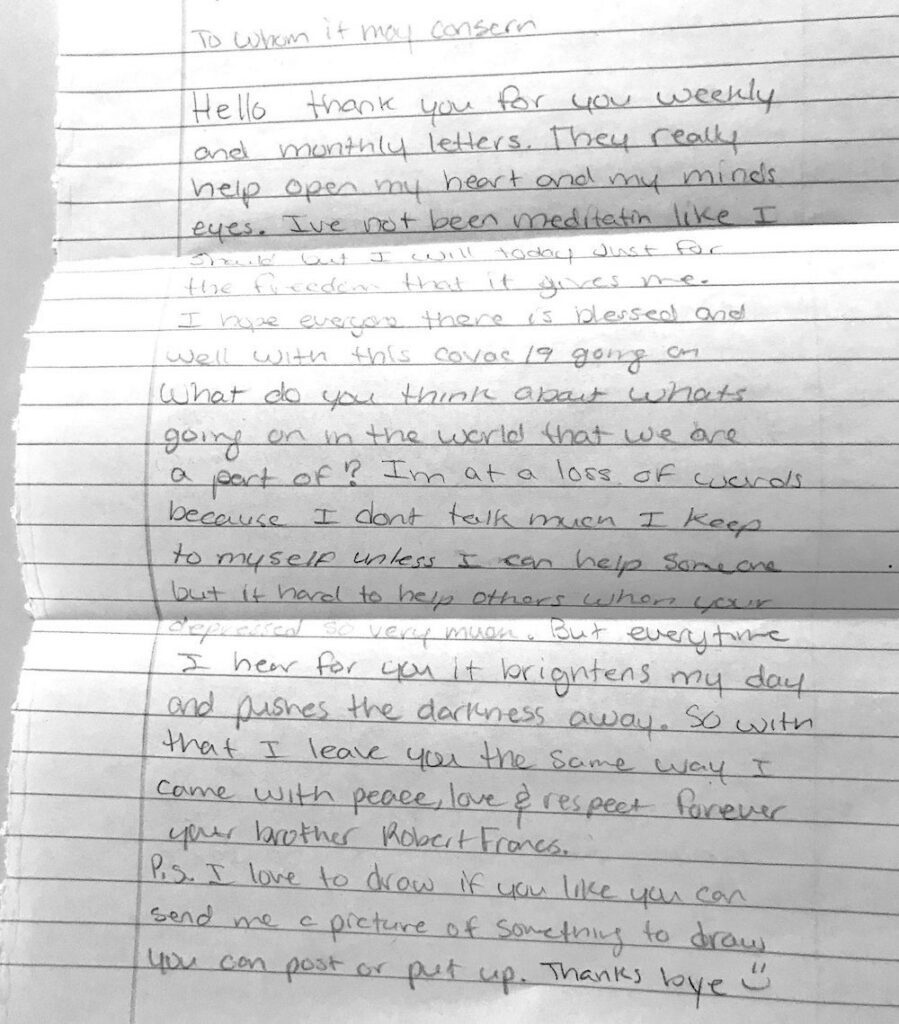 To whom it may consern
Hello thank you for you weekly
and monthly letters. They really
help open my heart and my minds
eyes. Ive not been meditatin like I
should but I will today Just for
the freedom that it gives me.
I hope everyone there is blessed and
well with this covac 19 going on
What do you think about whats
going on in the world that we are
a part of? Im at a loss of words
because I dont talk much I keep
to myself unless I can help someone
but it hard to help others when your
depressed so very much. But everytime
I hear for you it brightens my day
and pushes the darkness away. So with
that I leave you the same way I
came with peace, love & respect forever
your brother Robert Francs.
P.S. I love to draw if you like you can
send me a picture of something to draw
you can post or put up. Thanks bye